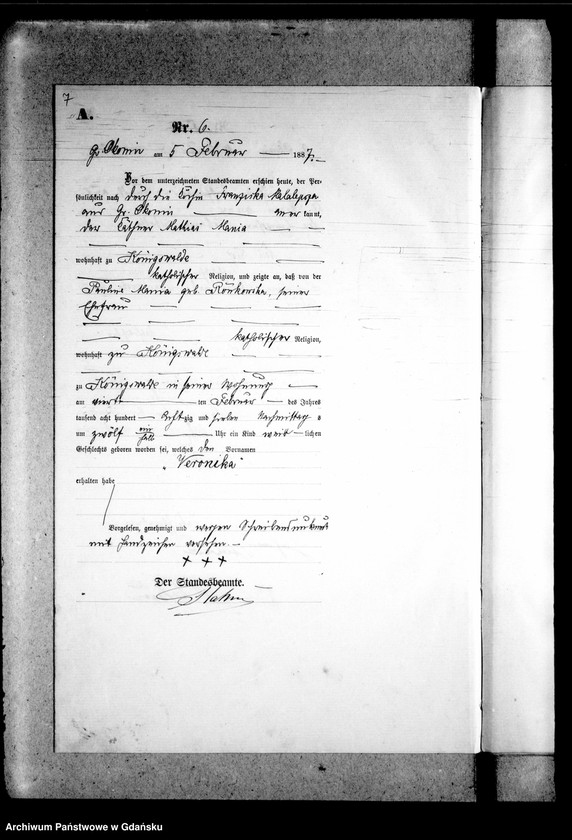 7
A.
Nr. 6.
Gr. Okonin am 5 Februar 1887.
Vor dem unterzeichneten Standesbeamten erschien heute, der Per-
sönlichkeit nach durch die Franziska
aus Gr. Okonin anerkannt,
der Käthner Mathias Mania
wohnhaft zu Königswalde
katholischer Religion, und zeigte an, daß von der
Pauline Mania geb. seiner
Ehefrau
katholischer Religion,
wohnhaft zu Königswalde
zu Königswalde in seiner Wohnung
am vierten Februar des Jahres
tausend acht hundert achtzig und sieben Nachmittags
um zwölf ein halb Uhr ein Kind weiblichen
Geschlechts geboren worden sei, welches den Vornamen
„Veronika“
erhalten habe
Vorgelesen, genehmigt und wegen Schreibensunkunde
mit Handzeichen versehen.
+ + +
Der Standesbeamte.
Archiwum Państwowe w Gdańsku